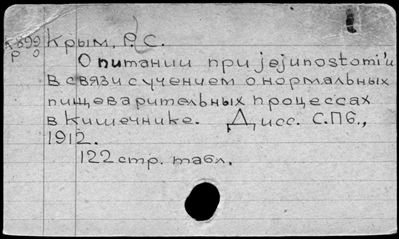 Крым, Р. С.
О питании при jejunostomi'и
в связи с учением о нормальных
пищеварительных процессах
в кишечнике. Дисс. С.Пб.,
1912.
122 стр. табл.